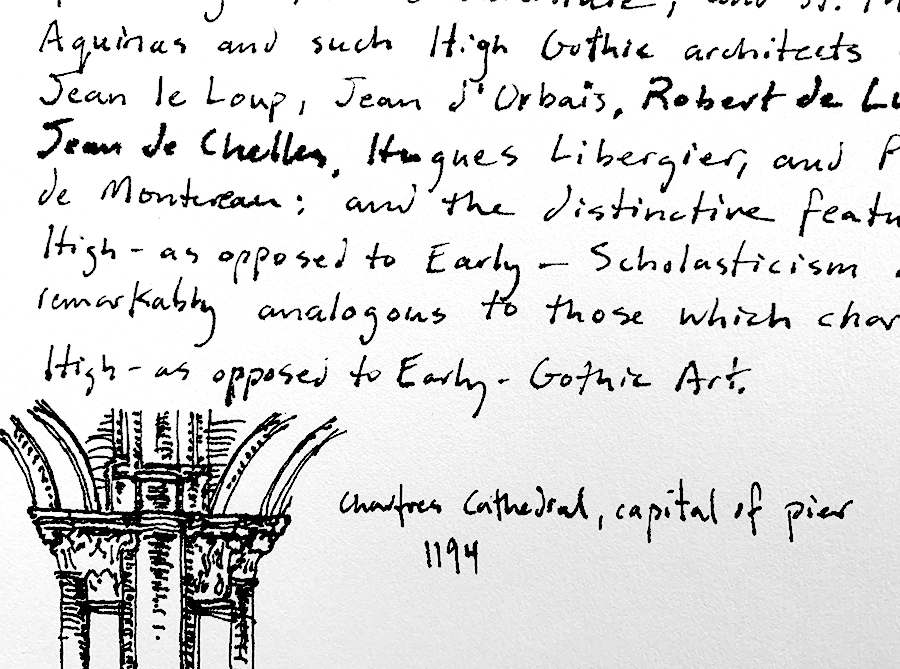 Aquinas and such High Gothic architects
Jean le Loup, Jean d'Orbais, Robert de
Jean de Chelles, Hugues Libergier, and
de Montereau; and the distinctive featu
High - as opposed to Early - Scholasticism
remarkably analogous to those which char
High - as opposed to Early - Gothic Art.
Chartres Cathedral, capital of pier
1194